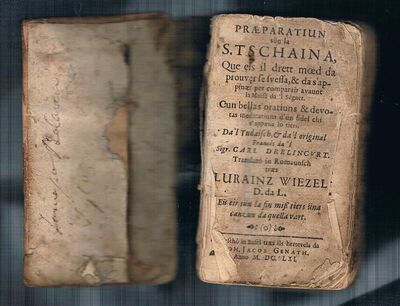 PRÆPARATIUN
sün la
S. TSCHAINA,
Que eis il drett mœd da
prouver se svessa, & da s'ap-
pinær per comparair avaunt
la Maista da'l Segner.
Cun bellas oratiuns & devo-
tas meditatiuns d'un fidel chi
Da'l Tudaisch, & da'l original
Franzes da'l
Sigr. CARL DRELINCVRT.
Translatô in Romaunsch
træs
LURAINZ WIEZEL
D. da L.
Eis eir sün la fin miss tiers üna
canzun da quella vart.
(o)
in Basel træs ils hertevels da
JOH. JACOB GENATH,
Anno M. DC. LXI.